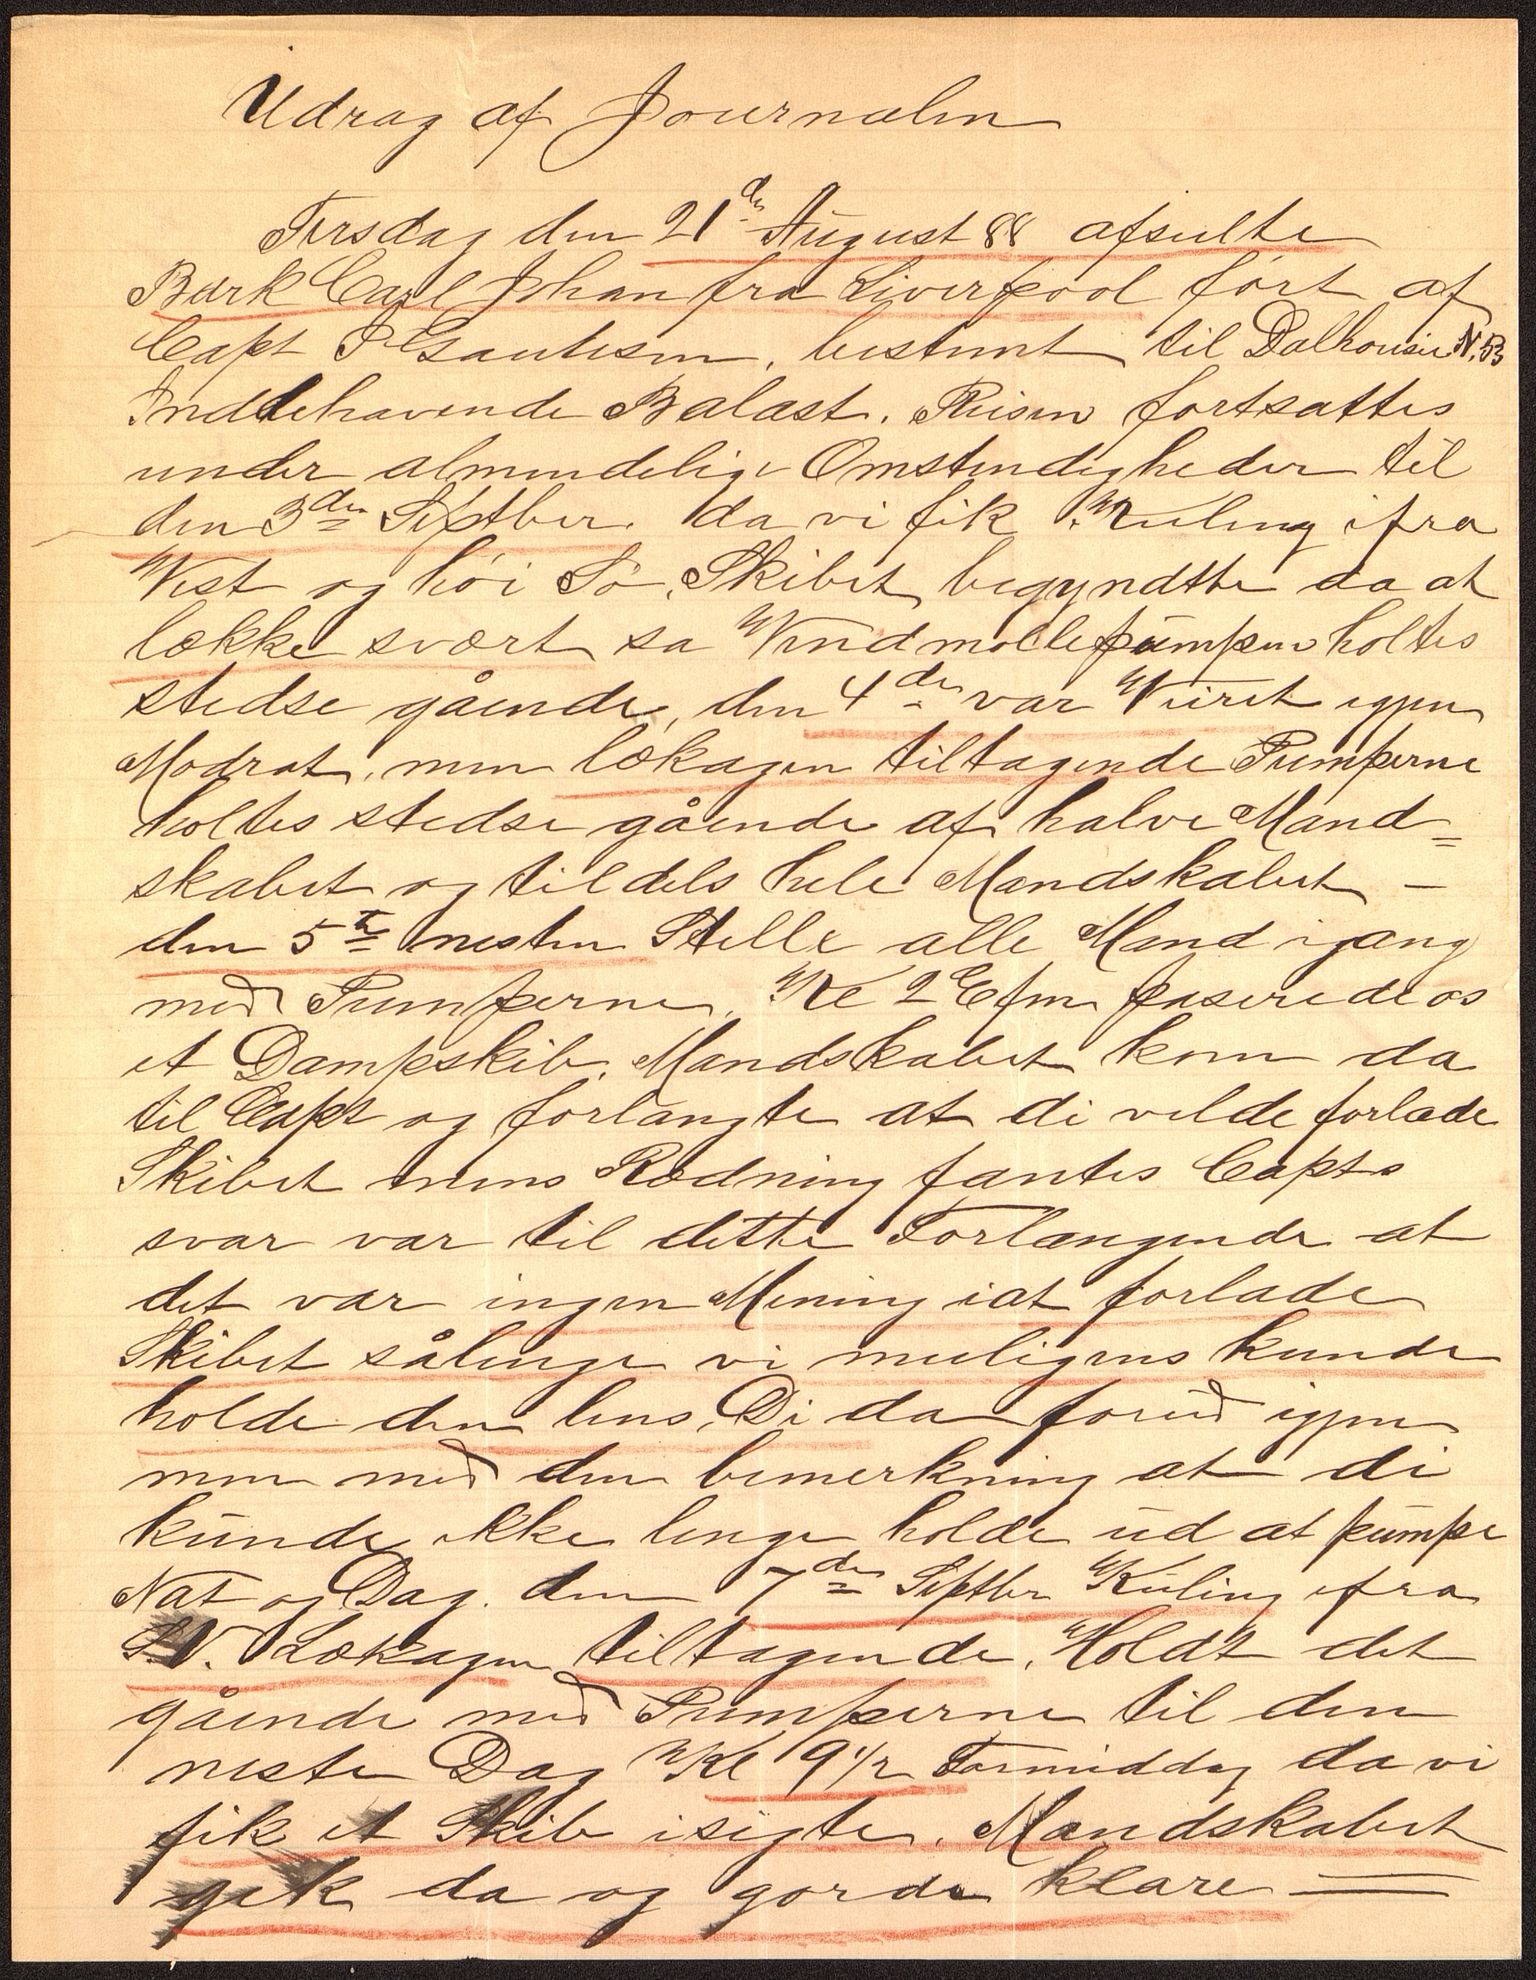 Udrag af Journalen
Tirsdag den 21de August 88 afseilte
Bark Carl Johan fra Liverpool ført af
Capt P Gautesen, bestemt til Dalhousie N.B
Inddehavende Balast. Reisen fortsattes
under almindelige Omstendigheder til
den 3de Septber. da vi fik Kuling ifra
Vest og høi Sø, Skibet begyndtte da at
lække svært sa Vindmøllepumpen holtes
stedse gående, den 4de var Veiret igjen
Modrat, men lækagen tiltagende Pumperne
holtes stedse gående af halve Mand=
skabet og tildels hele Mandskabet –
den 5te nesten Stille alle Mand igang
med Pumperne, Kl 2 Efm paserede os
et Dampskib, Mandskabet kom da
til Capt og forlangte at di vilde forlade
Skibet mens Rædning fantes Capts
svar var til dette Forlangende at
det var ingen Mening i at forlade
Skibet sålenge vi muligens kunde
holde den lens, Di da forud igjen
men med den bemerkning at di
kunde ikke lenge holde ud at pumpe
Nat og Dag. den 7de Septbr Kuling ifra
S.V. Lækagen tiltagende, Holdt det
gående med Pumperne til den
neste Dag Kl 9 1/2 Formiddag da vi
fik et Skib isigte. Mandskabet
gik da og gorde klare —